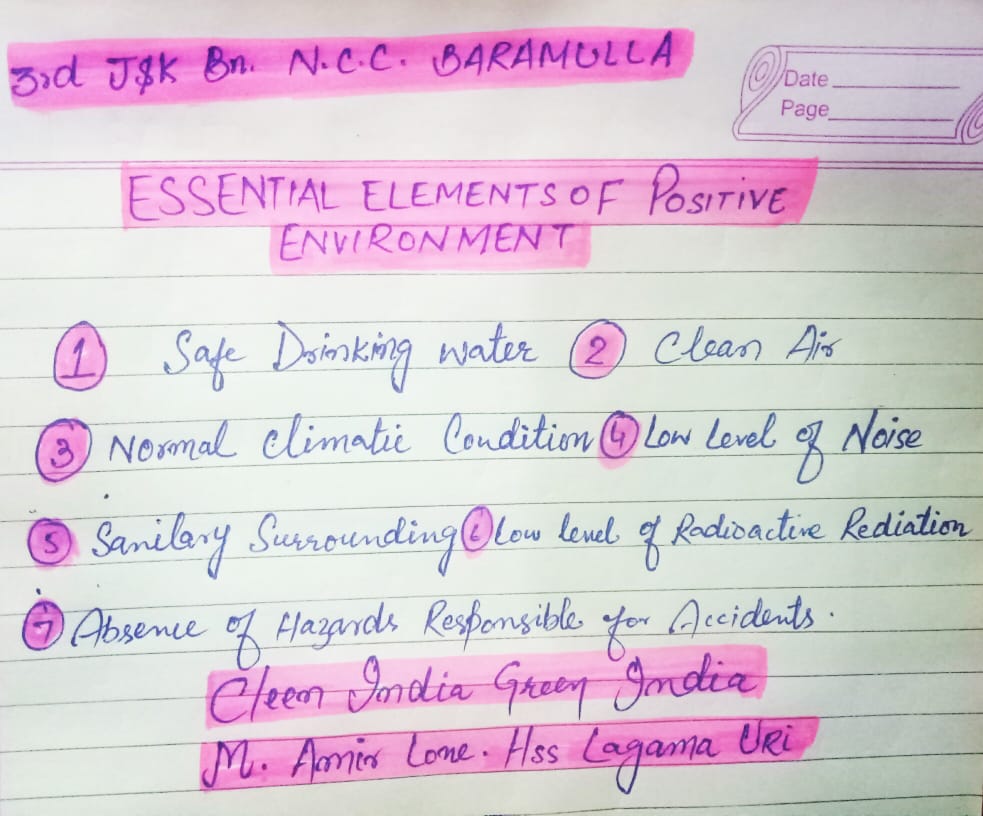 3rd J&K Bn. N.C.C. BARAMULLA
Date
Page
ESSENTIAL ELEMENTS OF POSITIVE
ENVIRONMENT
1 Safe Drinking water 2 Clean Air
3 Normal Climatic Condition 4 Low Level of Noise
5 Sanilary Surrounding 6 Low level of Radioactive Rediation
7 Absence of Hazards Responsible for Accidents.
Cleen India Green India
M. Amir Lone. Hss Lagama URi